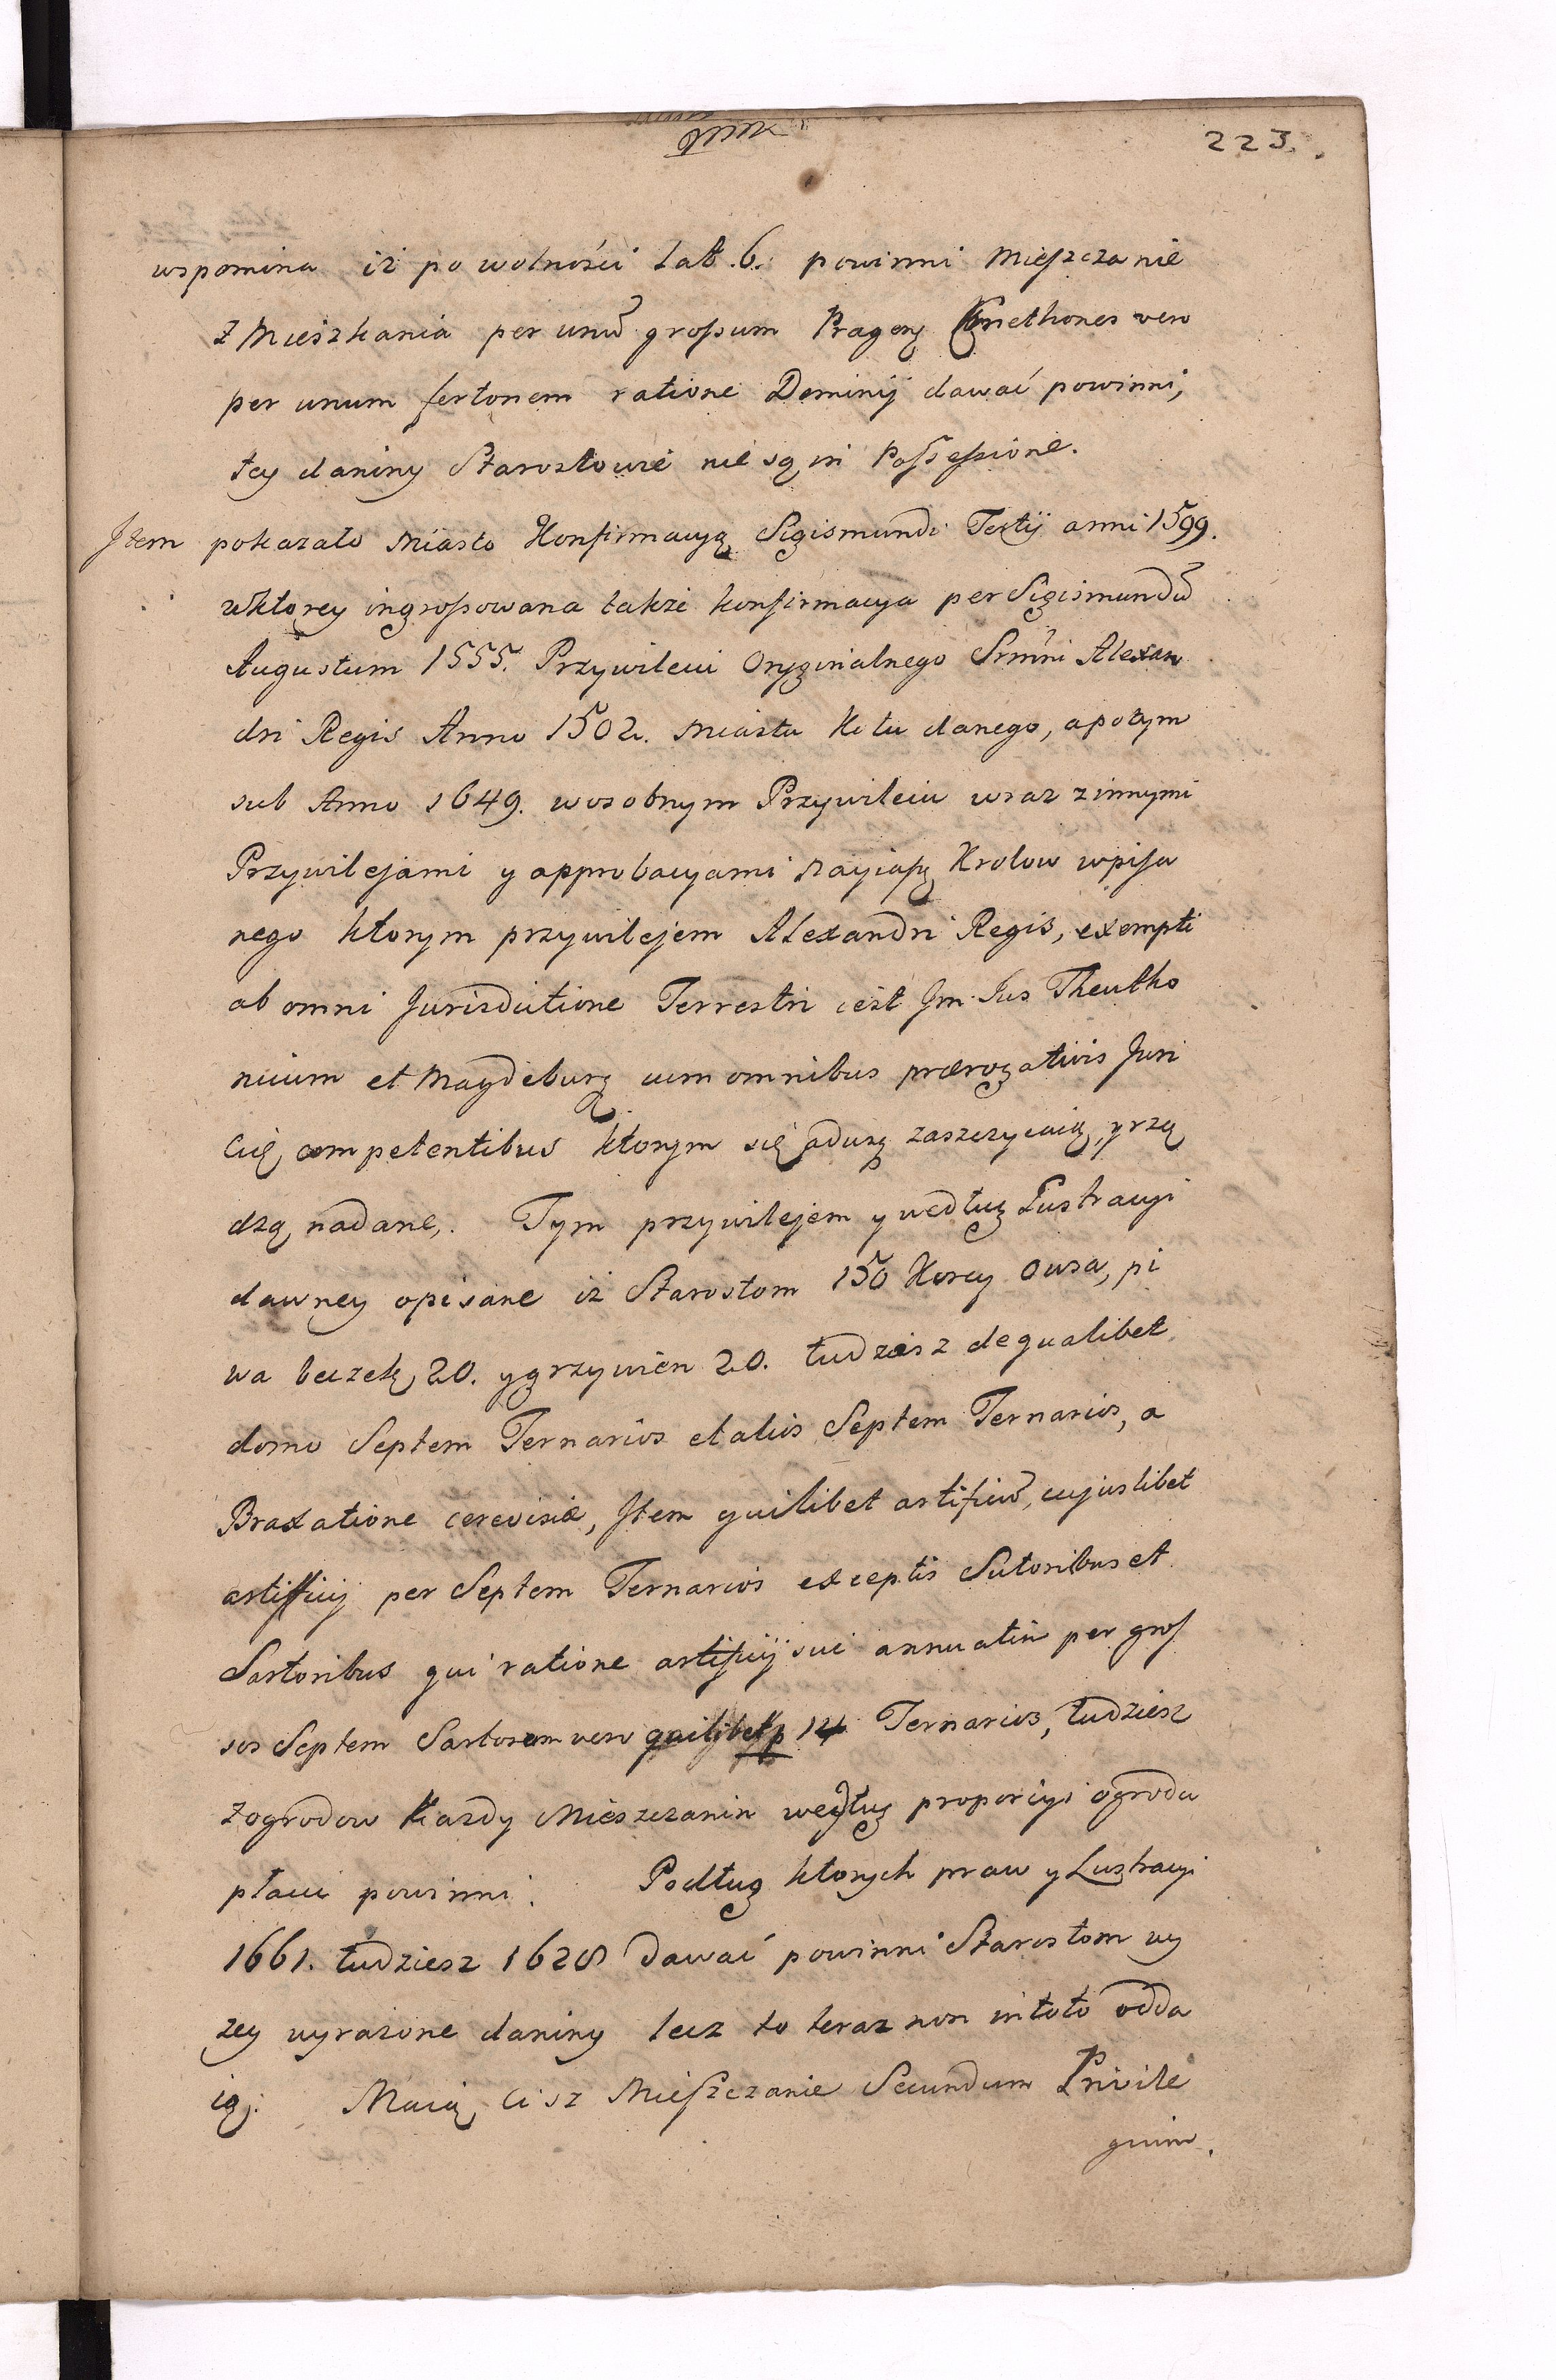 223.
wspomina iż po wolności lat .6. powinni Mieszczanie
z Mieszkania per unũ grossum Prageñ Cmethones vero
per unum fertonem ratione Dominij dawać powinni,
tey daniny Starostowie nie są in Possessione.
Item pokazało Miasto Konfirmacyą Sigismundi Tertij anni 1599.
w ktorey ingrossowana także konfirmacya per Sigismundũ
Augustum 1555. Przywileiu Oryginalnego Srmi Alexan
dri Regis Anno 1502. Miastu Ketu danego, a potym
sub Anno 1649. w osobnym Przywileiu wraz z innymi
Przywilejami y approbacyami Krolow wpisa
nego ktorym przywilejem Alexandri Regis, exempti
ab omni Jurisdictione Terrestri iest Jm Jus Theutho
nicum et Magdeburg cum omnibus prærogativis Juri
competentibus ktorym się zaszczycaią, y rzą
dzą, nadane,. Tym przywilejem y według Lustracyi
dawney opisane iż Starostom 150 Korcy Owsa, pi
wa beczek, 20. y grzywien 20. tudziesz de qualibet
domo Septem Ternarios et aliis Septem Ternarios, a
Braxatione cerevisiæ, Item quilibet artificũ, cujuslibet
artifficij per Septem Ternarios exceptis Sutoribus et
Sartoribus qui ratione artificij sui annuatim per gros
sos Septem Sartorum vero quilibet p 14 Ternarios, tudziesz
z ogrodow każdy Mieszczanin według proporcyi ogrodu
płacić powinni. Podług ktorych praw y Lustracyi
1661. tudziesz 1628 dawać powinni Starostom wy
żey wyrażone daniny lecz to teraz non in toto odda
ią. Maią, cisz Mieszczanie Secundum Privile
gium.